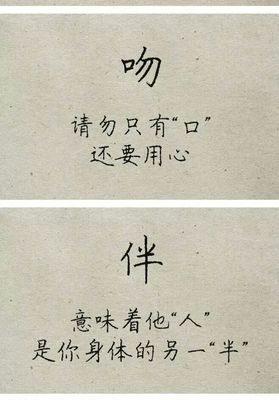 吻
请勿只有“口”
还要用心
伴
意味着他“人”
是你身体的另一“半”